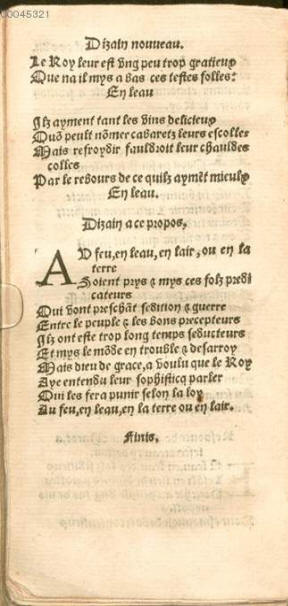 00045321
Dizain nouueau.
Le Roy leur est vng peu trop gratieux
Que na il mys a bas ces testes folles:
En leau
Ilz ayment tant les vins delicieux
Quō peult nōmer cabaretz leurs escolles
Mais refroydir fauldroit leur chauldes
colles
Par le rebours de ce quilz aymēt mieulx
En leau.
Dizain a ce propos.
AV feu, en leau, en lair, ou en la
terre
Soient prys & mys ces folz predi
cateurs
Qui vont preschāt sedition & guerre
Entre le peuple & les bons precepteurs
Ilz ont este trop long temps seducteurs
Et mys le mōde en trouble & desarroy
Mais dieu de grace, a voulu que le Roy
Aye entendu leur sophisticq parler
Qui les fera punir selon la loy
Au feu, en leau, en la terre ou en lair.
Finis.